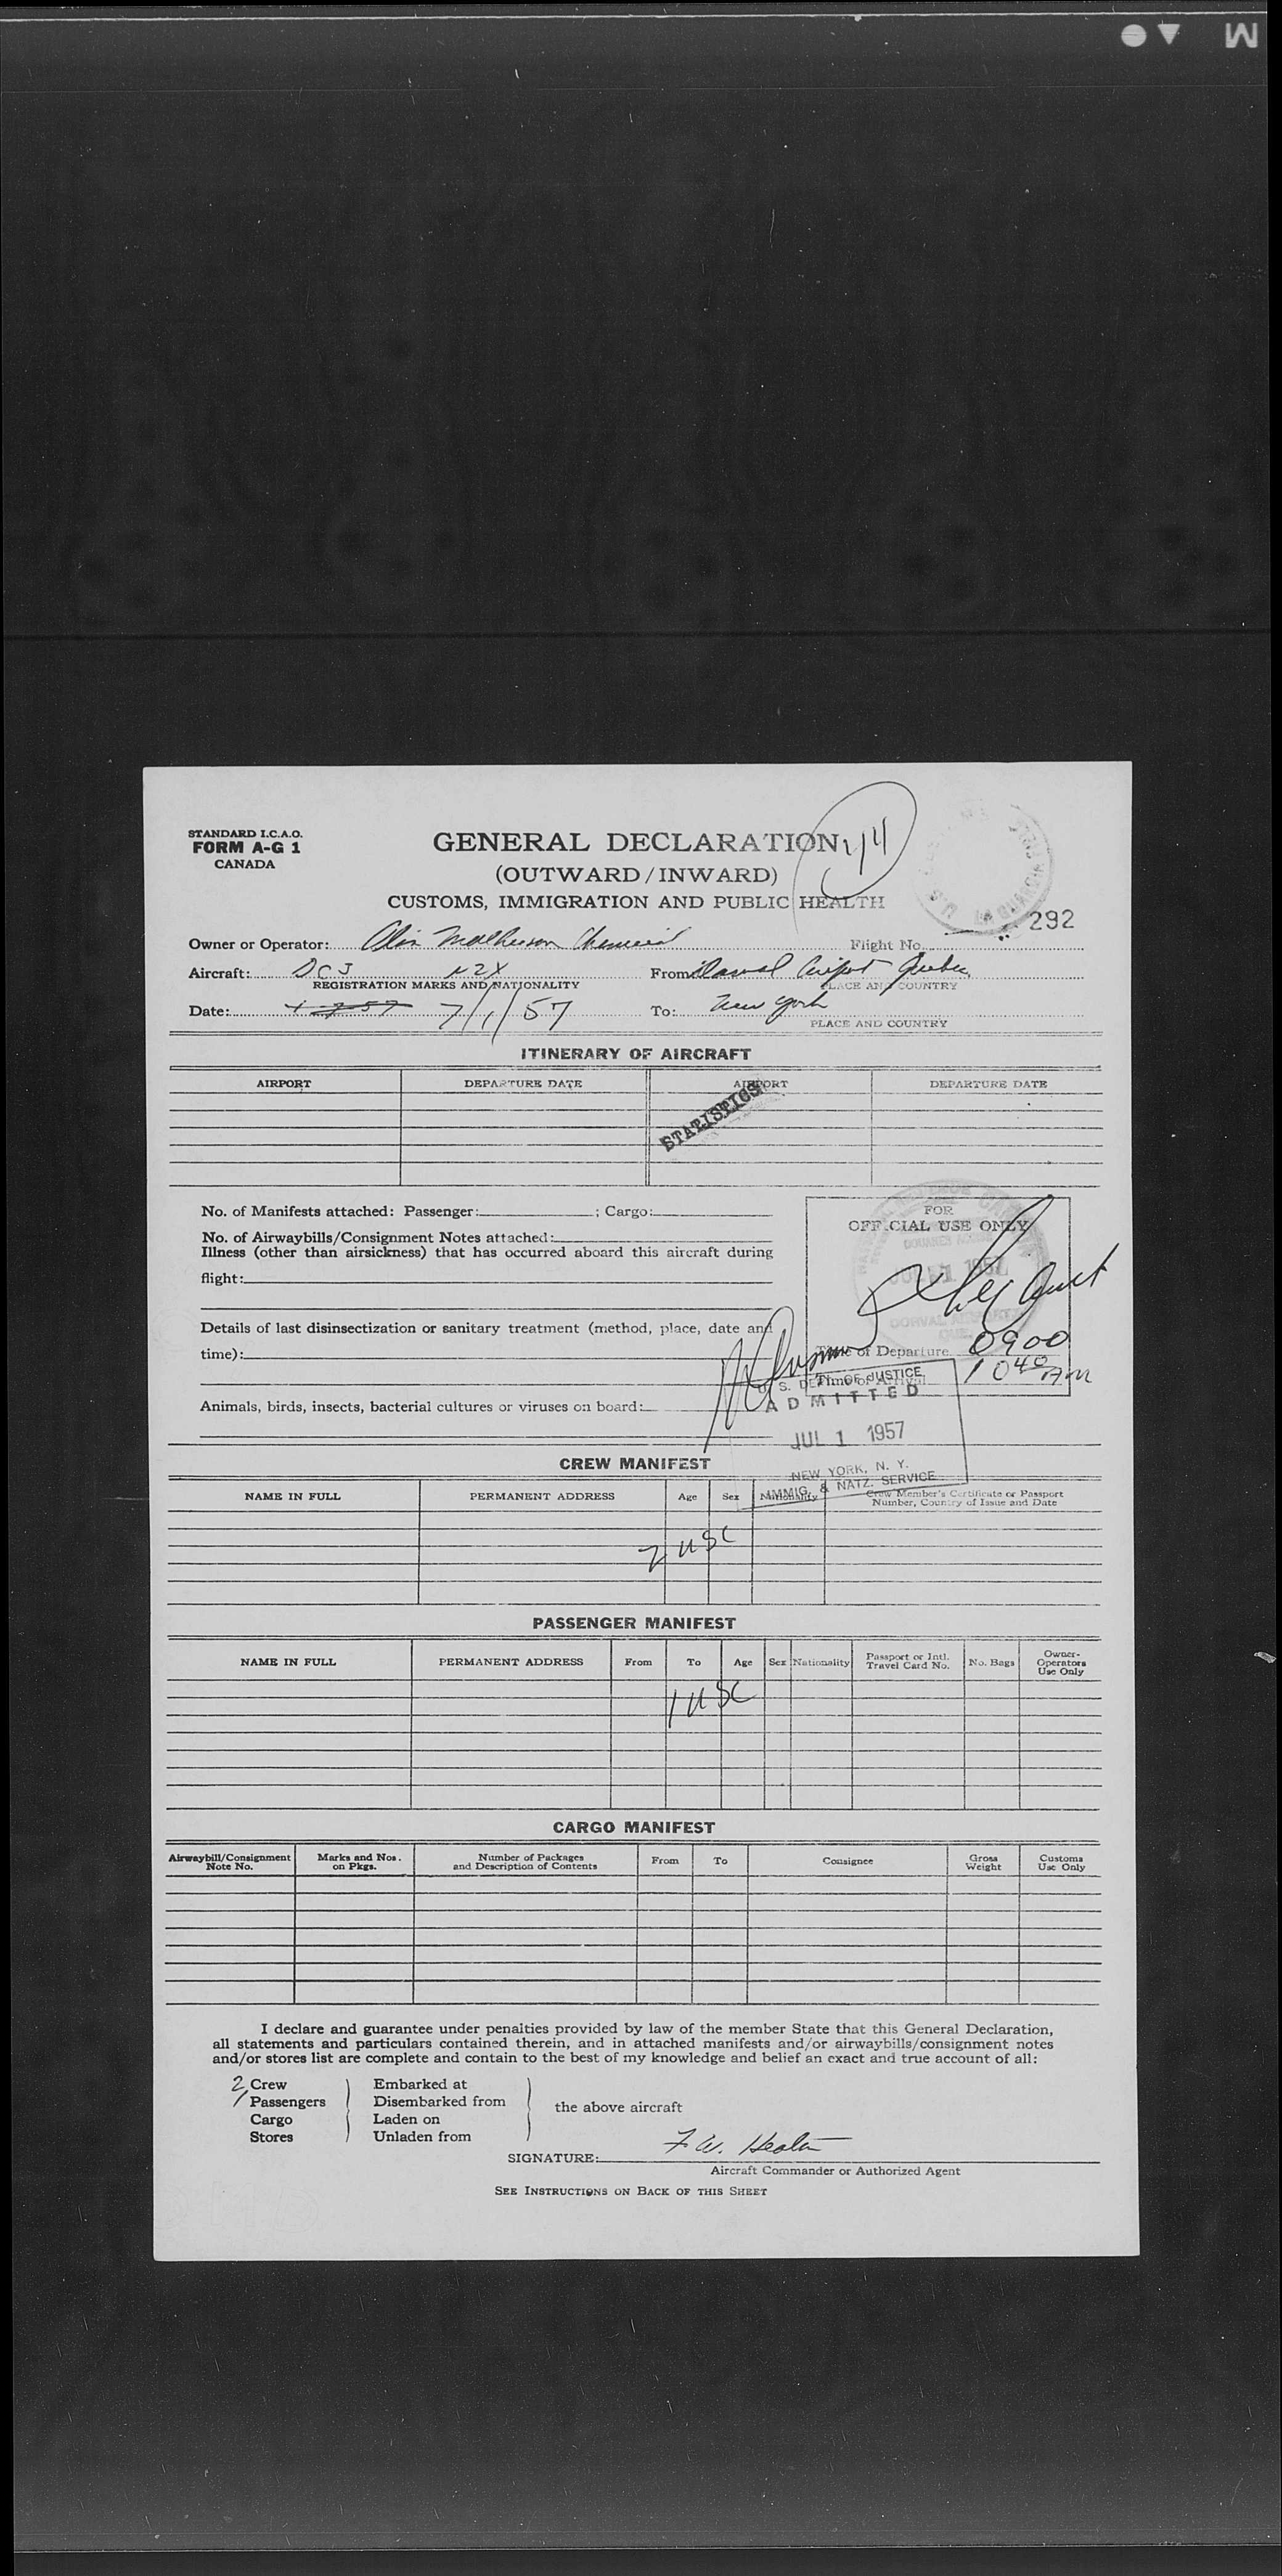 M
STANDARD I.C.A.O.
FORM A-G 1
CANADA
GENERAL DECLARATION
(OUTWARD/INWARD)
CUSTOMS, IMMIGRATION AND PUBLIC HEALTH
292
Owner or Operator: Olin Mathieson Chemical Flight No.
Aircraft: DC3 N2X From: Dorval Airport Quebec
REGISTRATION MARKS AND NATIONALITY PLACE AND COUNTRY
Date: 7/1/57 To: New York
PLACE AND COUNTRY
ITINERARY OF AIRCRAFT
AIRPORT DEPARTURE DATE AIRPORT DEPARTURE DATE
STATISTICS
No. of Manifests attached: Passenger: ; Cargo:
No. of Airwaybills/Consignment Notes attached:
Illness (other than airsickness) that has occurred aboard this aircraft during
flight:
Details of last disinsectization or sanitary treatment (method, place, date and
time):
Animals, birds, insects, bacterial cultures or viruses on board:
FOR
OFFICIAL USE ONLY
DORVAL AIRPORT
QUE.
Time of Departure 0900
Time of Arrival 10 40 AM
U. S. DEPT. OF JUSTICE
ADMITTED
JUL 1 1957
NEW YORK, N. Y.
IMMIG. & NATZ. SERVICE
CREW MANIFEST
NAME IN FULL PERMANENT ADDRESS Age Sex Nationality Crew Member's Certificate or Passport Number, Country of Issue and Date
2 USC
PASSENGER MANIFEST
NAME IN FULL PERMANENT ADDRESS From To Age Sex Nationality Passport or Intl. Travel Card No. No. Bags Owner-Operators Use Only
1 USC
CARGO MANIFEST
Airwaybill/Consignment Note No. Marks and Nos. on Pkgs. Number of Packages and Description of Contents From To Consignee Gross Weight Customs Use Only
I declare and guarantee under penalties provided by law of the member State that this General Declaration,
all statements and particulars contained therein, and in attached manifests and/or airwaybills/consignment notes
and/or stores list are complete and contain to the best of my knowledge and belief an exact and true account of all:
2 Crew Embarked at
1 Passengers Disembarked from
the above aircraft
Cargo Laden on
Stores Unladen from
SIGNATURE: F. W. Heaton
Aircraft Commander or Authorized Agent
SEE INSTRUCTIONS ON BACK OF THIS SHEET